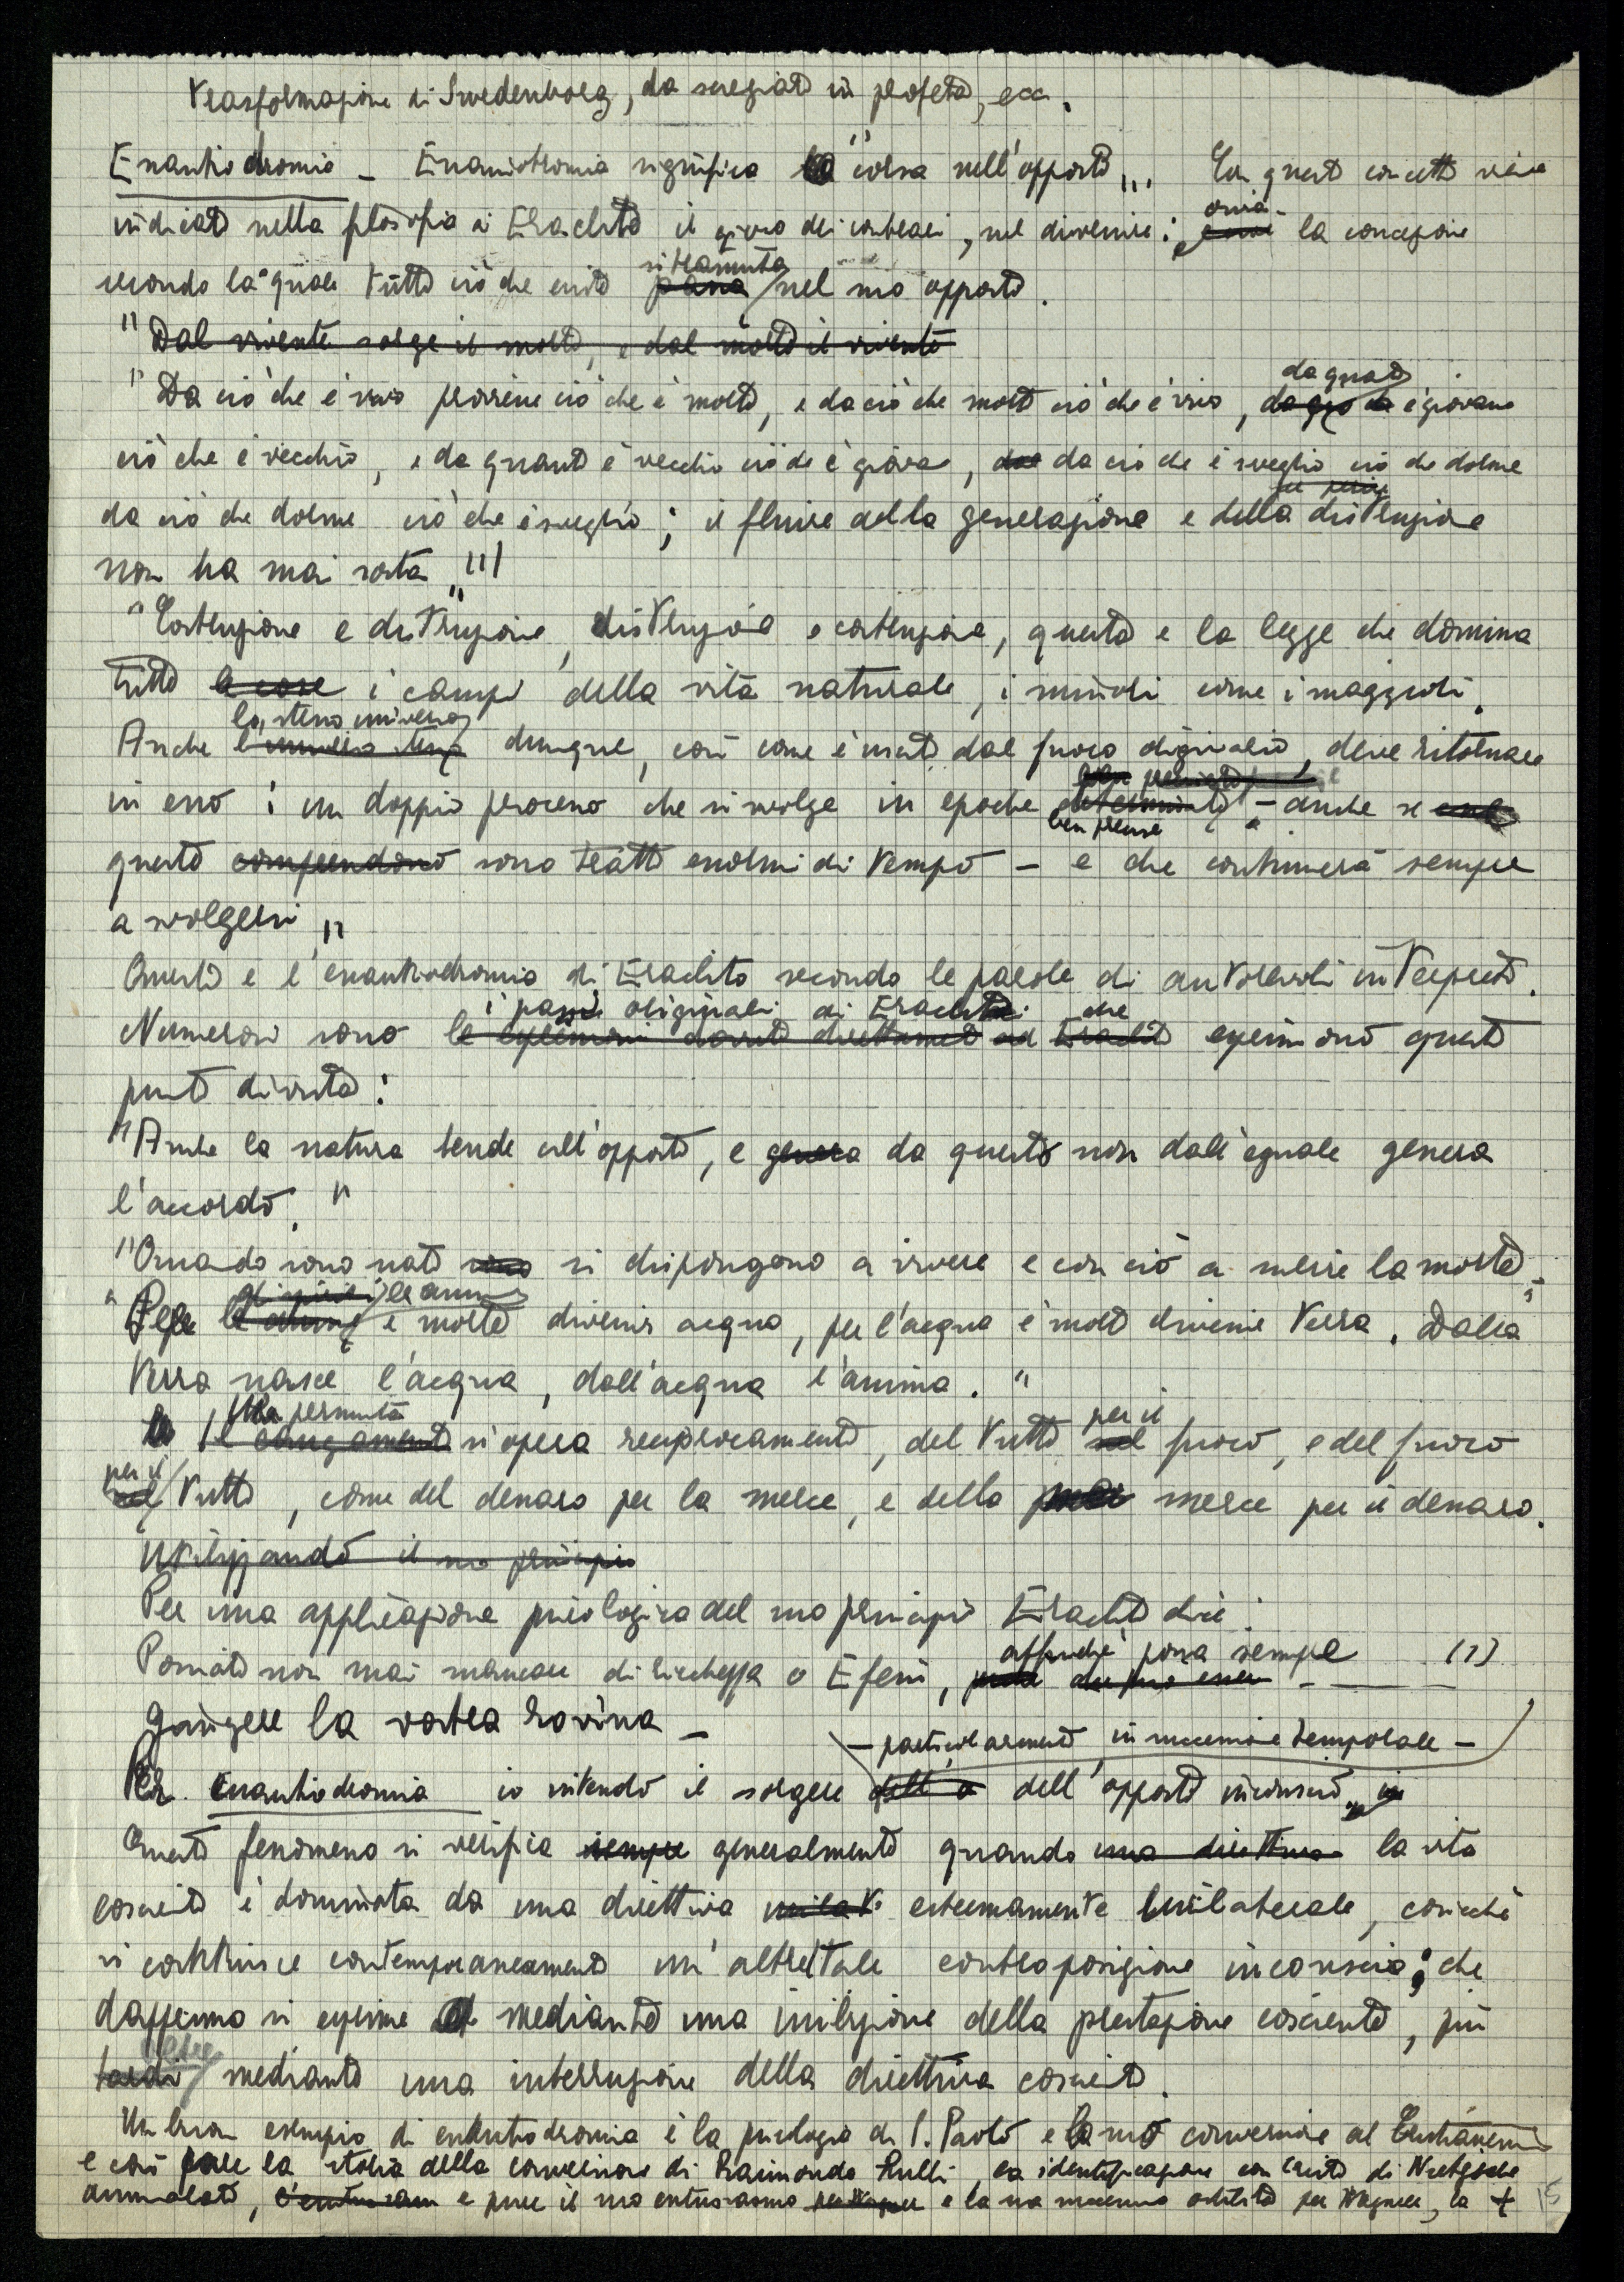 trasformazione di Swedenborg, da scienziato in profeta, ecc.
Enantiodromia – Enantiodromia significa "corsa nell'opposto". Con questo concetto viene
indicato nella filosofia di Eraclito il gioco dei contrari, nel divenire: ossia la concezione
secondo la quale tutto ciò che esiste si tramuta nel suo opposto.
"Dal vivente sorge il morto, e dal morto il vivente
"Da ciò che è vivo proviene ciò che è morto, e da ciò che morto ciò che è vivo, da quanto è giovane
ciò che è vecchio, e da quanto è vecchio ciò che è giovane, da ciò che è sveglio ciò che dorme
da ciò che dorme ciò che è sveglio; il fluire della generazione e della distruzione
non ha mai sosta."
"Costruzione e distruzione, distruzione e costruzione, questa è la legge che domina
tutti le cose i campi della vita naturale, i minori come i maggiori.
Anche lo stesso universo dunque, così come è uscito dal fuoco originario, deve ritornare
in esso: un doppio processo che si svolge in epoche ben precise – anche se
queste comprendono sono tratti enormi di tempo – e che continuerà sempre
a svolgersi"
Questa è l'enantiodromia di Eraclito secondo le parole di autorevoli interpreti.
i passi originali di Eraclito che
Numerosi sono le espressioni dovute direttamente ad Eraclito esprimono questo
punto di vista:
"Anche la natura tende all'opposto, e genera da questo non dall'eguale genera
l'accordo."
"Quando sono nati si dispongono a vivere e con ciò a subire la morte"
"Per le anime è morte divenire acqua, per l'acqua è morte divenire terra. Dalla
terra nasce l'acqua, dall'acqua l'anima."
La permuta
Il cangiamento si opera reciprocamente, del tutto per il fuoco, e del fuoco
per il tutto, come del denaro per la merce, e della merce per il denaro.
Utilizzando il suo principio
Per una applicazione psicologica del suo principio Eraclito dice:
Possiate non mai mancare di ricchezza o Efesi, affinché possa sempre (1)
giungere la vostra rovina –
– particolarmente in successione temporale –
Per enantiodromia io intendo il sorgere dell'opposto inconscio,
Questo fenomeno si verifica sempre generalmente quando una direttiva la vita
cosciente è dominata da una direttiva estremamente unilaterale, cosicché
si costituisce contemporaneamente un'altrettale contrapposizione inconscia; che
dapprima si esprime mediante una inibizione della prestazione cosciente, più
tardi mediante una interruzione della direttiva cosciente.
Un buon esempio di enantiodromia è la psicologia di S. Paolo e la sua conversione al Cristianesimo
e così pure la storia della conversione di Raimondo Lulli, la identificazione con Cristo di Nietzsche
ammalato, e pure il suo entusiasmo per Wagner e la sua successiva ostilità per Wagner, la +
15